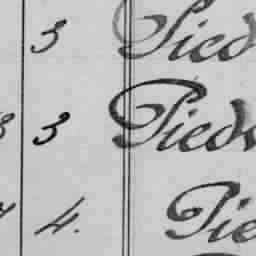 3 Pied
3 3 Pieds
4. Pie